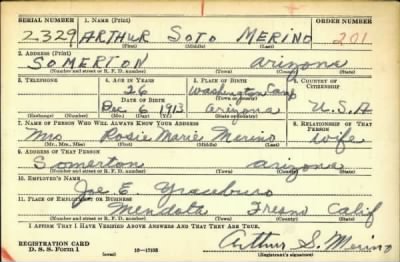 SERIAL NUMBER 1. NAME (Print) ORDER NUMBER
2329 ARTHUR SOTO MERINO 201
(First) (Middle) (Last)
2. ADDRESS (Print)
SOMERTON Arizona
(Number and street or R. F. D. number) (Town) (County) (State)
3. TELEPHONE 4. AGE IN YEARS 5. PLACE OF BIRTH 6. COUNTRY OF CITIZENSHIP
26 Washington Camp
DATE OF BIRTH (Town or county)
Dec 6 1913 Arizona U.S.A
(Exchange) (Number) (Mo.) (Day) (Yr.) (State or country)
7. NAME OF PERSON WHO WILL ALWAYS KNOW YOUR ADDRESS 8. RELATIONSHIP OF THAT PERSON
Mrs Rosie Marie Merino Wife
(Mr., Mrs., Miss) (First) (Middle) (Last)
9. ADDRESS OF THAT PERSON
Somerton Arizona
(Number and street or R. F. D. number) (Town) (County) (State)
10. EMPLOYER'S NAME
Joe E.
11. PLACE OF EMPLOYMENT OR BUSINESS
Mendota Fresno Calif
(Number and street or R. F. D. number) (Town) (County) (State)
I AFFIRM THAT I HAVE VERIFIED ABOVE ANSWERS AND THAT THEY ARE TRUE.
REGISTRATION CARD
D. S. S. Form 1 (over) 16—17105 Arthur S. Merino
(Registrant's signature)